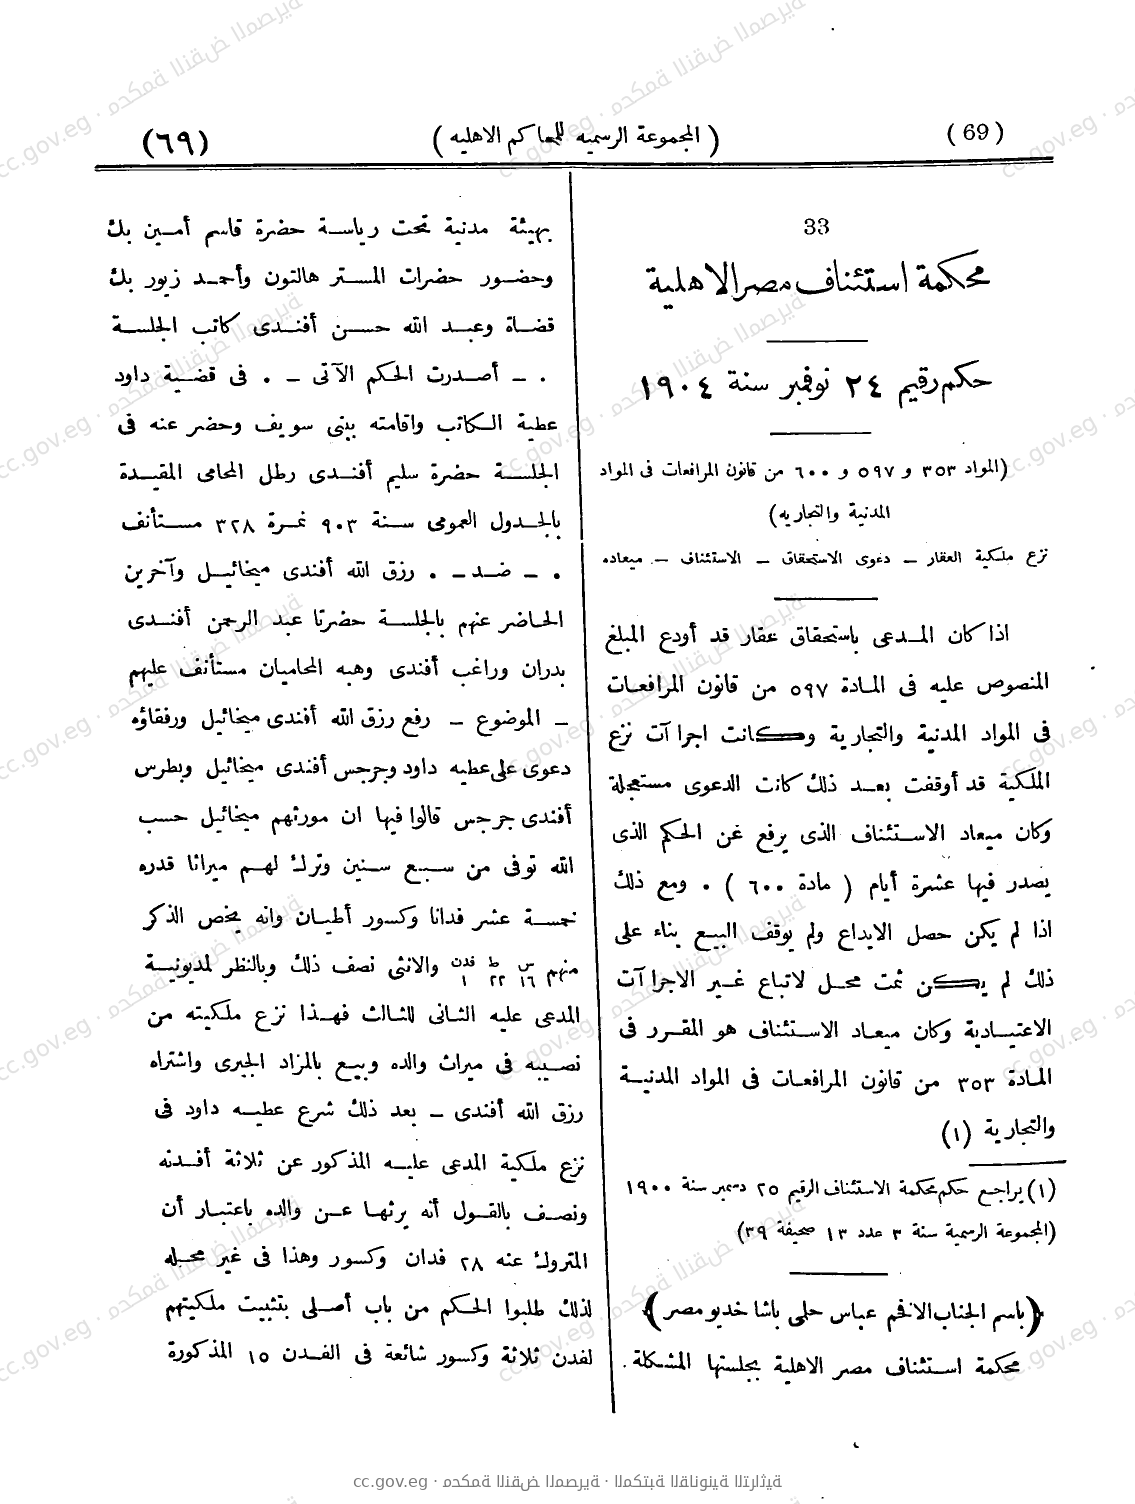 (٦٩) (المجموعة الرسميه للمحاكم الاهليه) (69)
33
محكمة استئناف مصر الاهلية
حكم رقيم ٢٤ نوفمبر سنة ١٩٠٤
(المواد ٣٥٣ و ٥٩٧ و ٦٠٠ من قانون المرافعات فى المواد
المدنية والتجاريه)
نزع ملكية العقار – دعوى الاستحقاق – الاستئناف – ميعاده
اذا كان المدعى باستحقاق عقار قد أودع المبلغ
المنصوص عليه فى المادة ٥٩٧ من قانون المرافعات
فى المواد المدنية والتجارية وكانت اجراآت نزع
الملكية قد أوقفت بعد ذلك كانت الدعوى مستعجلة
وكان ميعاد الاستئناف الذى يرفع عن الحكم الذى
يصدر فيها عشرة أيام (مادة ٦٠٠) . ومع ذلك
اذا لم يكن حصل الايداع ولم يوقف البيع بناء على
ذلك لم يكن ثمت محل لاتباع غير الاجراآت
الاعتيادية وكان ميعاد الاستئناف هو المقرر فى
المادة ٣٥٣ من قانون المرافعات فى المواد المدنية
والتجارية (١)
(١) يراجع حكم محكمة الاستئناف الرقيم ٢٥ دسمبر سنة ١٩٠٠
(المجموعة الرسمية سنة ٣ عدد ١٣ صحيفة ٣٩)
(باسم الجناب الافخم عباس حلمى باشا خديو مصر)
محكمة استئناف مصر الاهلية بجلستها المشكلة
بهيئة مدنية تحت رياسة حضرة قاسم أمين بك
وحضور حضرات المستر هالتون وأحمد زيور بك
قضاة وعبد الله حسن أفندى كاتب الجلسة
. – أصدرت الحكم الآتى – . فى قضية داود
عطية الكاتب واقامته ببنى سويف وحضر عنه فى
الجلسة حضرة سليم أفندى رطل المحامى المقيدة
بالجدول العمومى سنة ٩٠٣ نمرة ٣٢٨ مستأنف
. – ضد – . رزق الله أفندى ميخائيل وآخرين
الحاضر عنهم بالجلسة حضرتا عبد الرحمن أفندى
بدران وراغب أفندى وهبه المحاميان مستأنف عليهم
– الموضوع – رفع رزق الله أفندى ميخائيل ورفقاؤه
دعوى على عطيه داود وجرجس أفندى ميخائيل وبطرس
أفندى جرجس قالوا فيها ان مورثهم ميخائيل حسب
الله توفى من سبع سنين وترك لهم ميراثا قدره
خمسة عشر فدانا وكسور أطيان وانه يخص الذكر
منهم س ١٦ ط ٢٢ فدن ١ والانثى نصف ذلك وبالنظر لمديونية
المدعى عليه الثانى للثالث فهذا نزع ملكيته من
نصيبه فى ميراث والده وبيع بالمزاد الجبرى واشتراه
رزق الله أفندى – بعد ذلك شرع عطيه داود فى
نزع ملكية المدعى عليه المذكور عن ثلاثة أفدنه
ونصف بالقول أنه يرثها عن والده باعتبار أن
المتروك عنه ٢٨ فدان وكسور وهذا فى غير محله
لذلك طلبوا الحكم من باب أصلى بتثبيت ملكيتهم
لفدن ثلاثة وكسور شائعة فى الفدن ١٥ المذكورة
cc.gov.eg · محكمة النقض المصرية · المكتبة القانونية التراثية